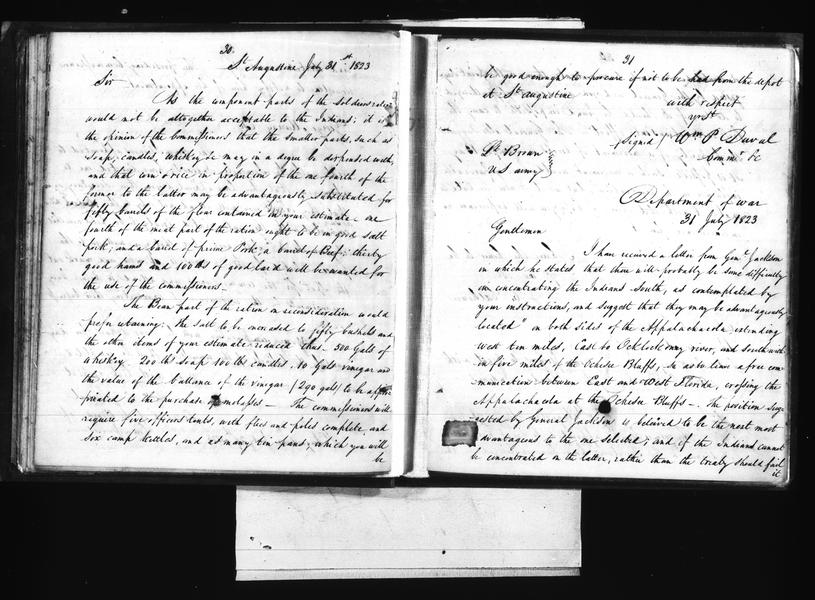 30.
St Augustine July 31st 1823
Sir
As the component parts of the Soldiers ration
would not be altogether acceptable to the Indians; it is
the opinion of the Commissioners that the smaller parts, such as
soap, candles, whiskey &c may in a degree be dispensed with,
and that corn & rice in proportion of the one fourth of the
former to the latter may be advantageously substituted for
fifty barrels of the flour contained in your estimate - one
fourth of the meat part of the ration ought to be in good salt
pork, and a barrel of prime Pork, a barrel of Beef; thirty
good hams and 100 lbs of good lard will be wanted for
the use of the commissioners -
The Bean part of the ration on reconsideration we would
prefer retaining. The salt to be increased to fifty bushels and
the other items of your estimate reduced thus - 300 Galls of
whiskey - 200 lbs soap 100 lbs candles, 10 Galls vinegar and
the value of the ballance of the vinegar (290 galls) to be appro
priated to the purchase of molasses - The commissioners will
require five officers tents, with flies and poles complete and
six camp kettles, and as many tin pans; which you will
be
31
be good enough to procure if not to be had from the depot
at St Augustine
with respect
yrs &
(signed) Wm P Duval
Commr &c
Lt Brown
US army
Department of war
31 July 1823
Gentlemen
I have received a letter from Genl Jackson
in which he states that there will probably be some difficulty
in concentrating the Indians South, as contemplated by
your instructions, and suggest that they may be advantageously
located on both sides of the Appalachacola extending
west ten miles, East to Ocklockony river, and south with
in five miles of the Ochesee Bluffs, so as to leave a free com-
munication between East and West Florida, crossing the
Appalachacola at the Ochesee Bluffs - The position sugg
ested by General Jackson is believed to be the most most
advantageous to the one selected; and if the Indians cannot
be concentrated on the latter, rather than the treaty should fail
it